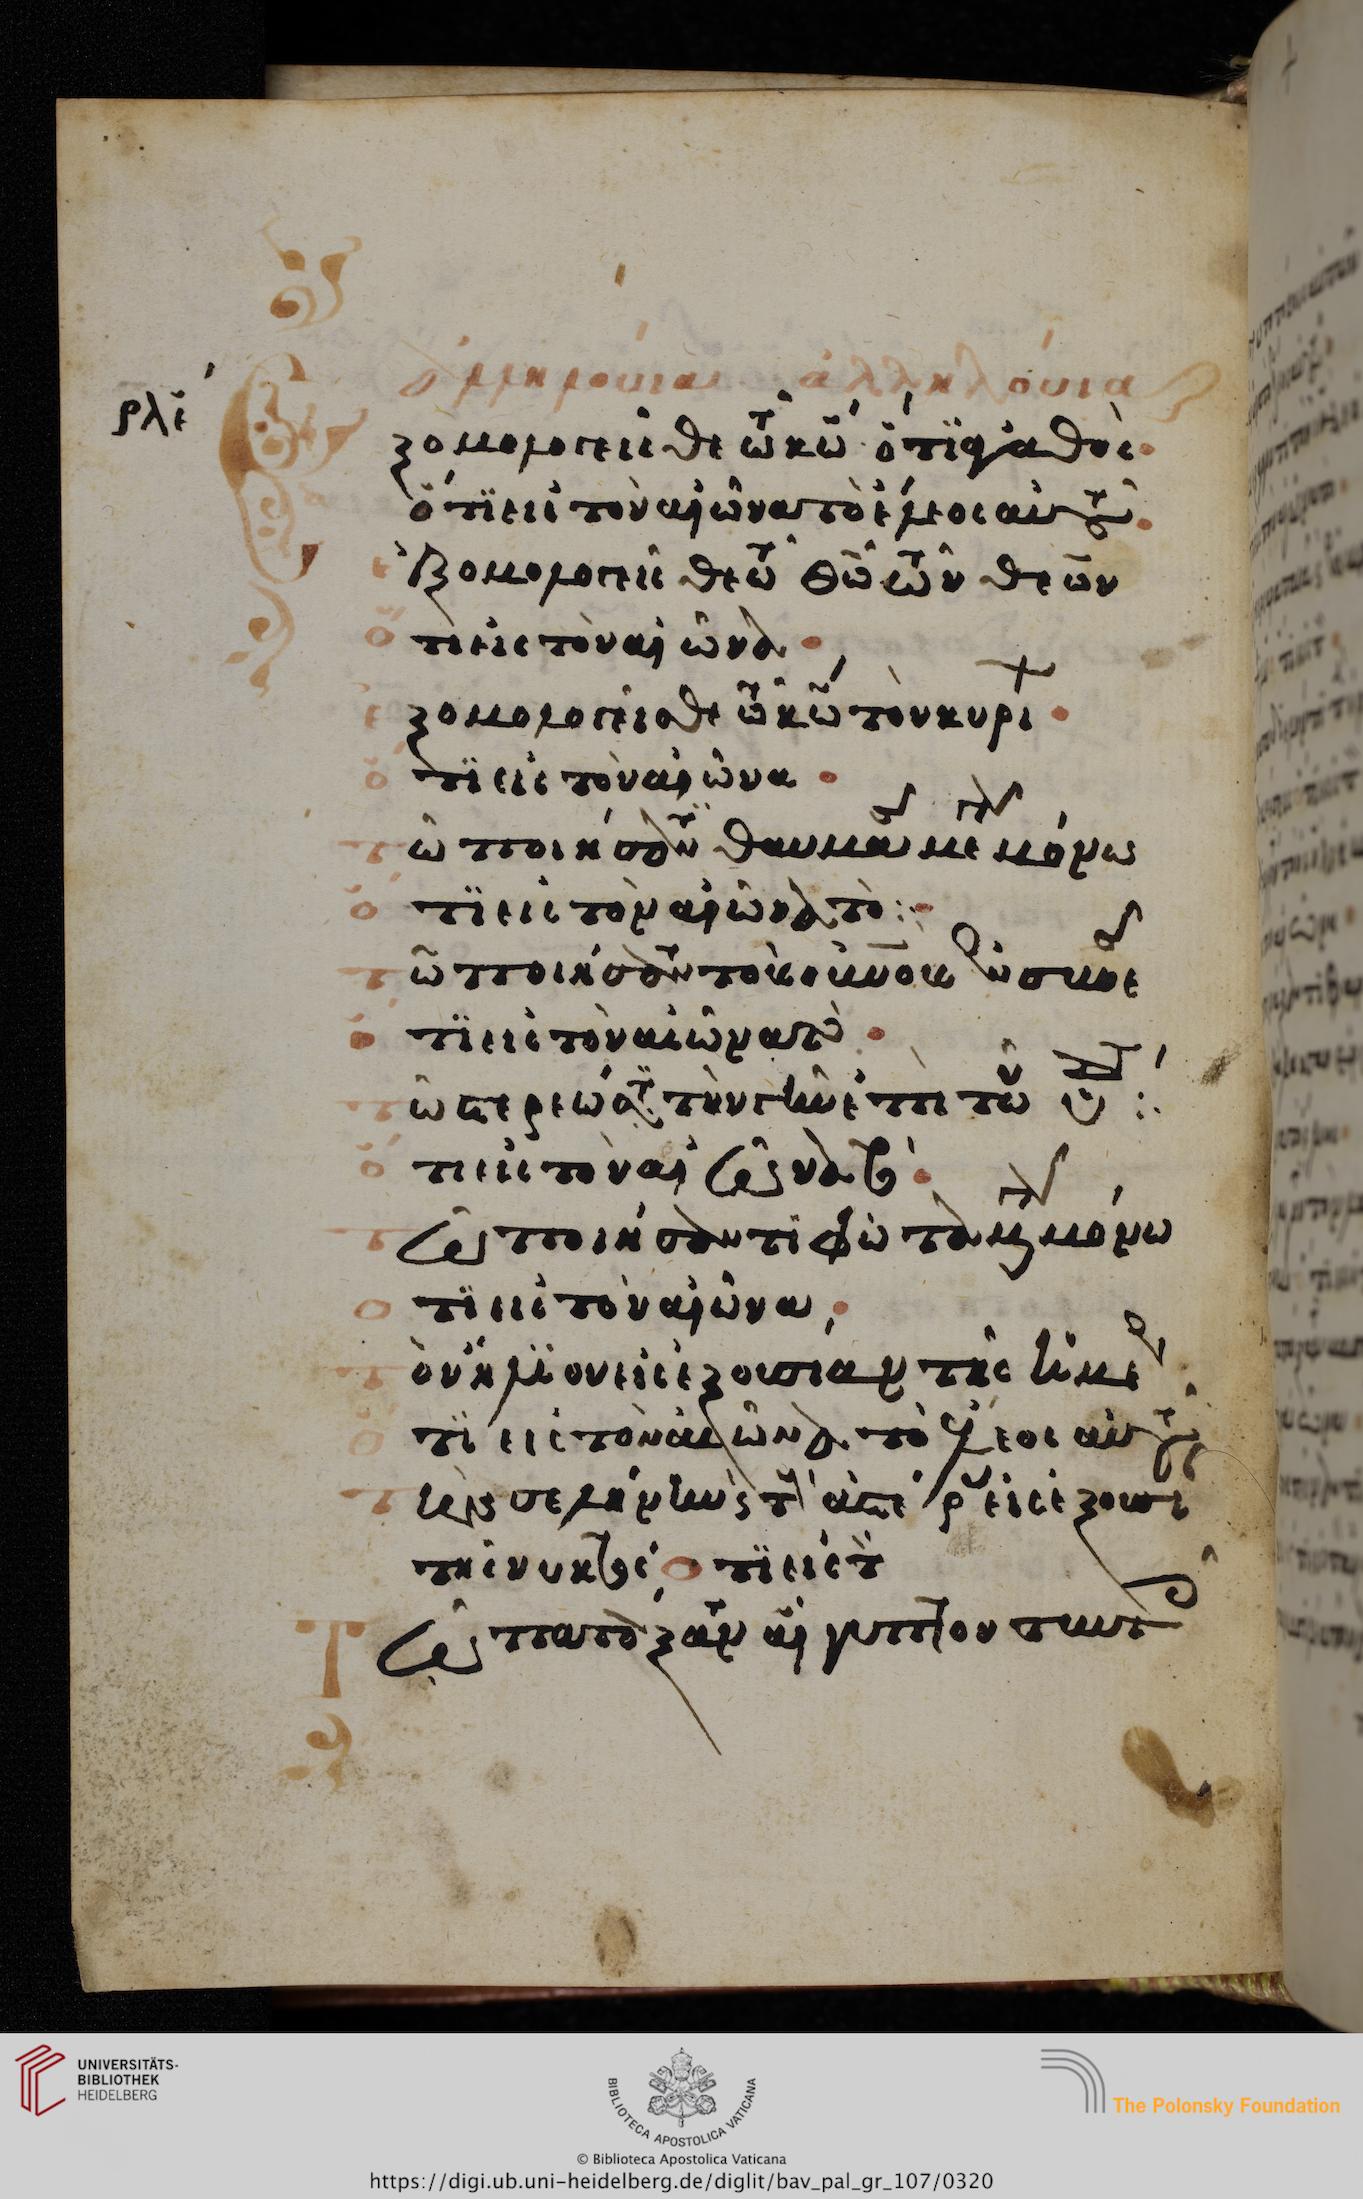 ρλε
ἀλληλούια
Ἐξομολογεῖσθε τῶ κῶ ὅτι ἀγαθὸς
ὅτι εἰς τὸν αἰῶνα τὸ ἔλεος αὐτοῦ
ἐξομολογεῖσθε τῶ θῶ τῶν θεῶν
ὅτι εἰς τὸν αἰῶνα
ἐξομολογεῖσθε τῶ κῶ τῶν κυρί
ὅτι εἰς τὸν αἰῶνα
τῶ ποιήσαντι θαυμα μεγ μόνω
ὅτι εἰς τὸν αἰῶνα τὸ
τῶ ποιήσαντι τοὺς οὐνοὺς ἐν συνέσε
ὅτι εἰς τὸν αἰῶνα τὸ
τῶ στερεώσαντι τὴν γῆν ἐπὶ τῶν ὑδ
ὅτι εἰς τὸν αἰῶνα τὸ
τῶ ποιήσαντι φῶτα μεγ μόνω
ὅτι εἰς τὸν αἰῶνα
τὸν ἥλιον εἰς ἐξουσίαν τῆς ἡμε
ὅτι εἰς τὸν αἰῶνα τὸ ἔλεος αὐτοῦ
τὴν σελήνην καὶ τοὺς ἀστέρας εἰς ἐξουσι
τῆς νυκτός ὅτι εἰς τ
Τῶ πατάξαντι αἴγυπτον
UNIVERSITÄTS-
BIBLIOTHEK
HEIDELBERG
BIBLIOTECA APOSTOLICA VATICANA
The Polonsky Foundation
© Biblioteca Apostolica Vaticana
https://digi.ub.uni-heidelberg.de/diglit/bav_pal_gr_107/0320